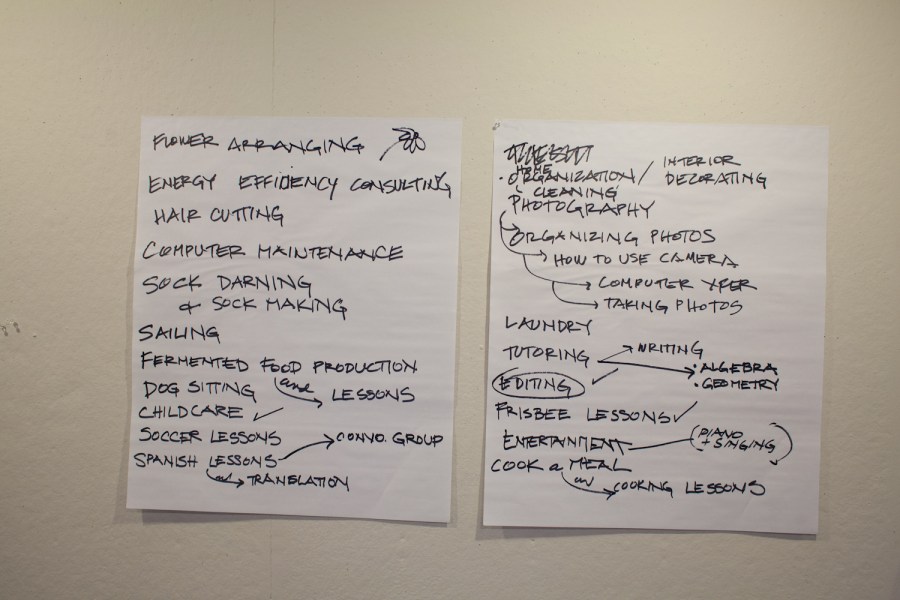 FLOWER ARRANGING
ENERGY EFFICIENCY CONSULTING
HAIR CUTTING
COMPUTER MAINTENANCE
SOCK DARNING
& SOCK MAKING
SAILING
FERMENTED FOOD PRODUCTION
and LESSONS
DOG SITTING
CHILDCARE ✓
SOCCER LESSONS
SPANISH LESSONS → CONVO. GROUP
→ TRANSLATION
HOME
• ORGANIZATION / INTERIOR DECORATING
& CLEANING
PHOTOGRAPHY
→ ORGANIZING PHOTOS
→ HOW TO USE CAMERA
→ COMPUTER XFER
→ TAKING PHOTOS
LAUNDRY
TUTORING → WRITING
• ALGEBRA
• GEOMETRY
EDITING ✓
FRISBEE LESSONS ✓
ENTERTAINMENT (PIANO + SINGING)
COOK a MEAL
or → COOKING LESSONS